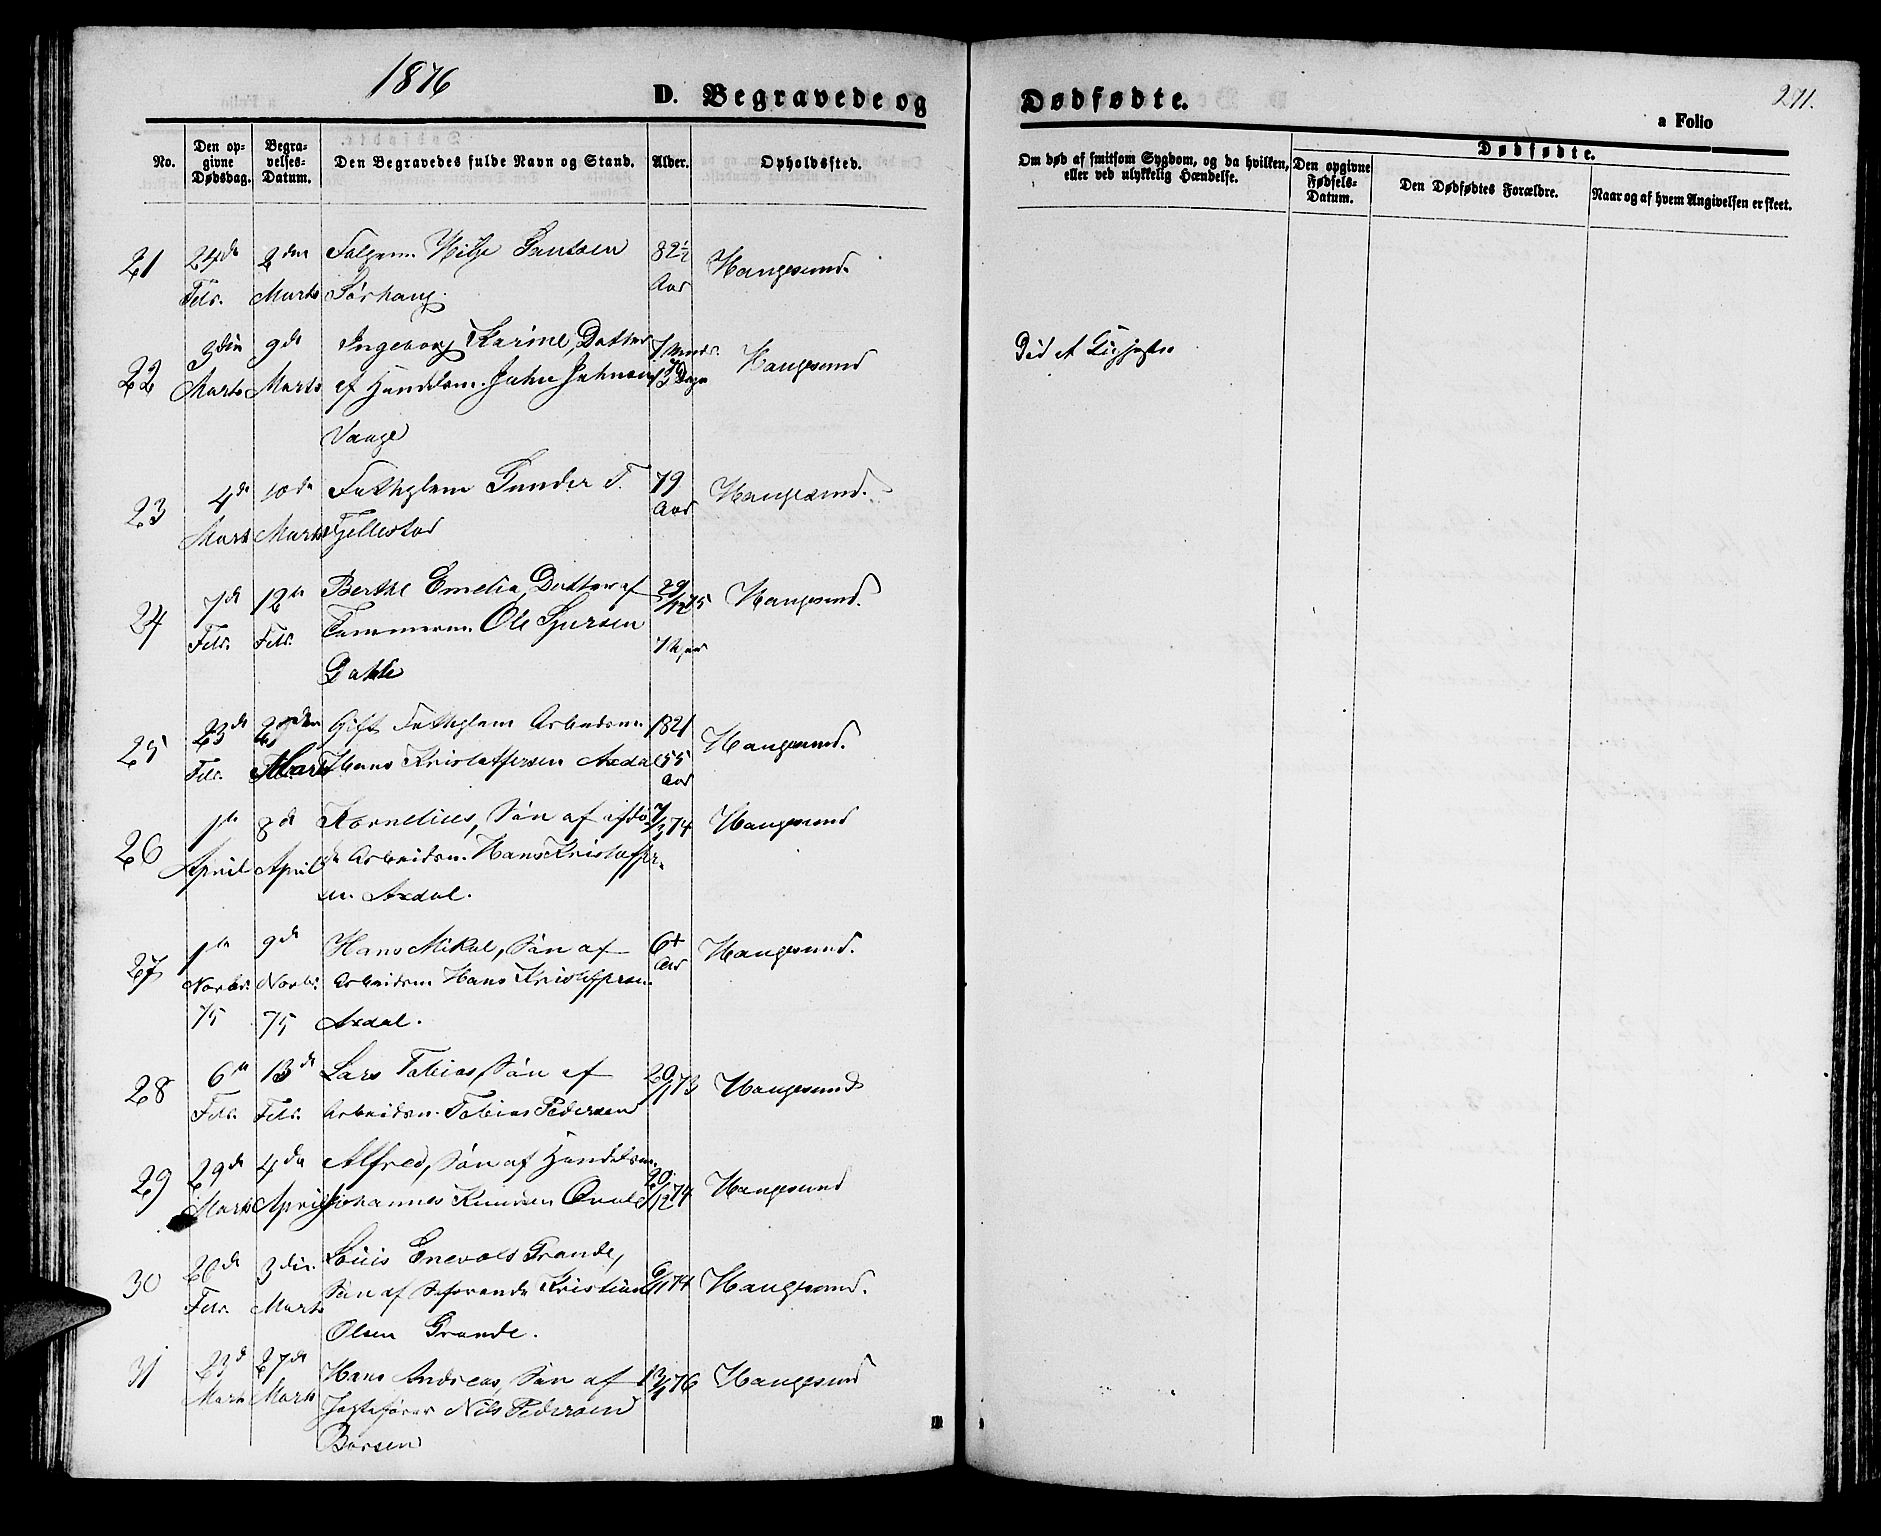 1876
D. Begravede og
Dødfødte.
271.
a Folio
No.
Den op-
givne
Dødsdag.
Begra-
velses-
Datum.
Den Begravedes fulde Navn og Stand.
Alder.
Opholdssted.
Om død af smitsom Sygdom, og da hvilken,
eller ved ulykkelig Hændelse.
Dødfødte.
Den opgivne
Fødsels-
Datum.
Den Dødfødtes Forældre.
Naar og af hvem Angivelsen er skeet.
21 24de Febr. 2den Marts
82½ Aar Haugesund.
Sørhaug.
22 3die Marts 9de Marts Ingeborg Karine, Datter
af Handelsm. John Johnsen
Vaage
7 Haugesund
Død af
23 4de Marts 10de Marts Fattiglem Gunder T.
Fjellestad
79 Aar Haugesund.
24 7de Febr. 12te Febr. Berthe Emelia, Datter af
Tømmerm. Ole Sjursen
Bakke
29/12 75 Haugesund.
25 23de Febr. Marts Gift Fattiglem Arbeidsm.
Hans Kristoffersen Axdal
1821 55 Aar Haugesund.
26 1te April 8de April Kornelius, Søn af afdø-
de Arbeidsm. Hans Kristoffer-
sen Axdal.
7/3 74 Haugesund
27 1te Novbr. 75 9de Novbr. 75 Hans Mikal, Søn af
Arbeidsm. Hans Kristoffersen
Axdal.
6 Aar Haugesund.
28 6te Febr. 13de Febr. Lars Tobias, Søn af
Arbeidsm. Tobias Pedersen
20/1 73 Haugesund
29 29de Marts 4de April Alfred, Søn af Handelsm.
Johannes Knudsen Qvale
20/12 74 Haugesund
30 26de Febr. 3die Marts Louis Enevold Grande,
Søn af Søfarende Kristian
Olsen Grande.
6/1 74 Haugesund.
31 23de Marts 27de Marts Hans Andreas, Søn af
Jagtefører Nils Pedersen
Borsen
13/1 76 Haugesund